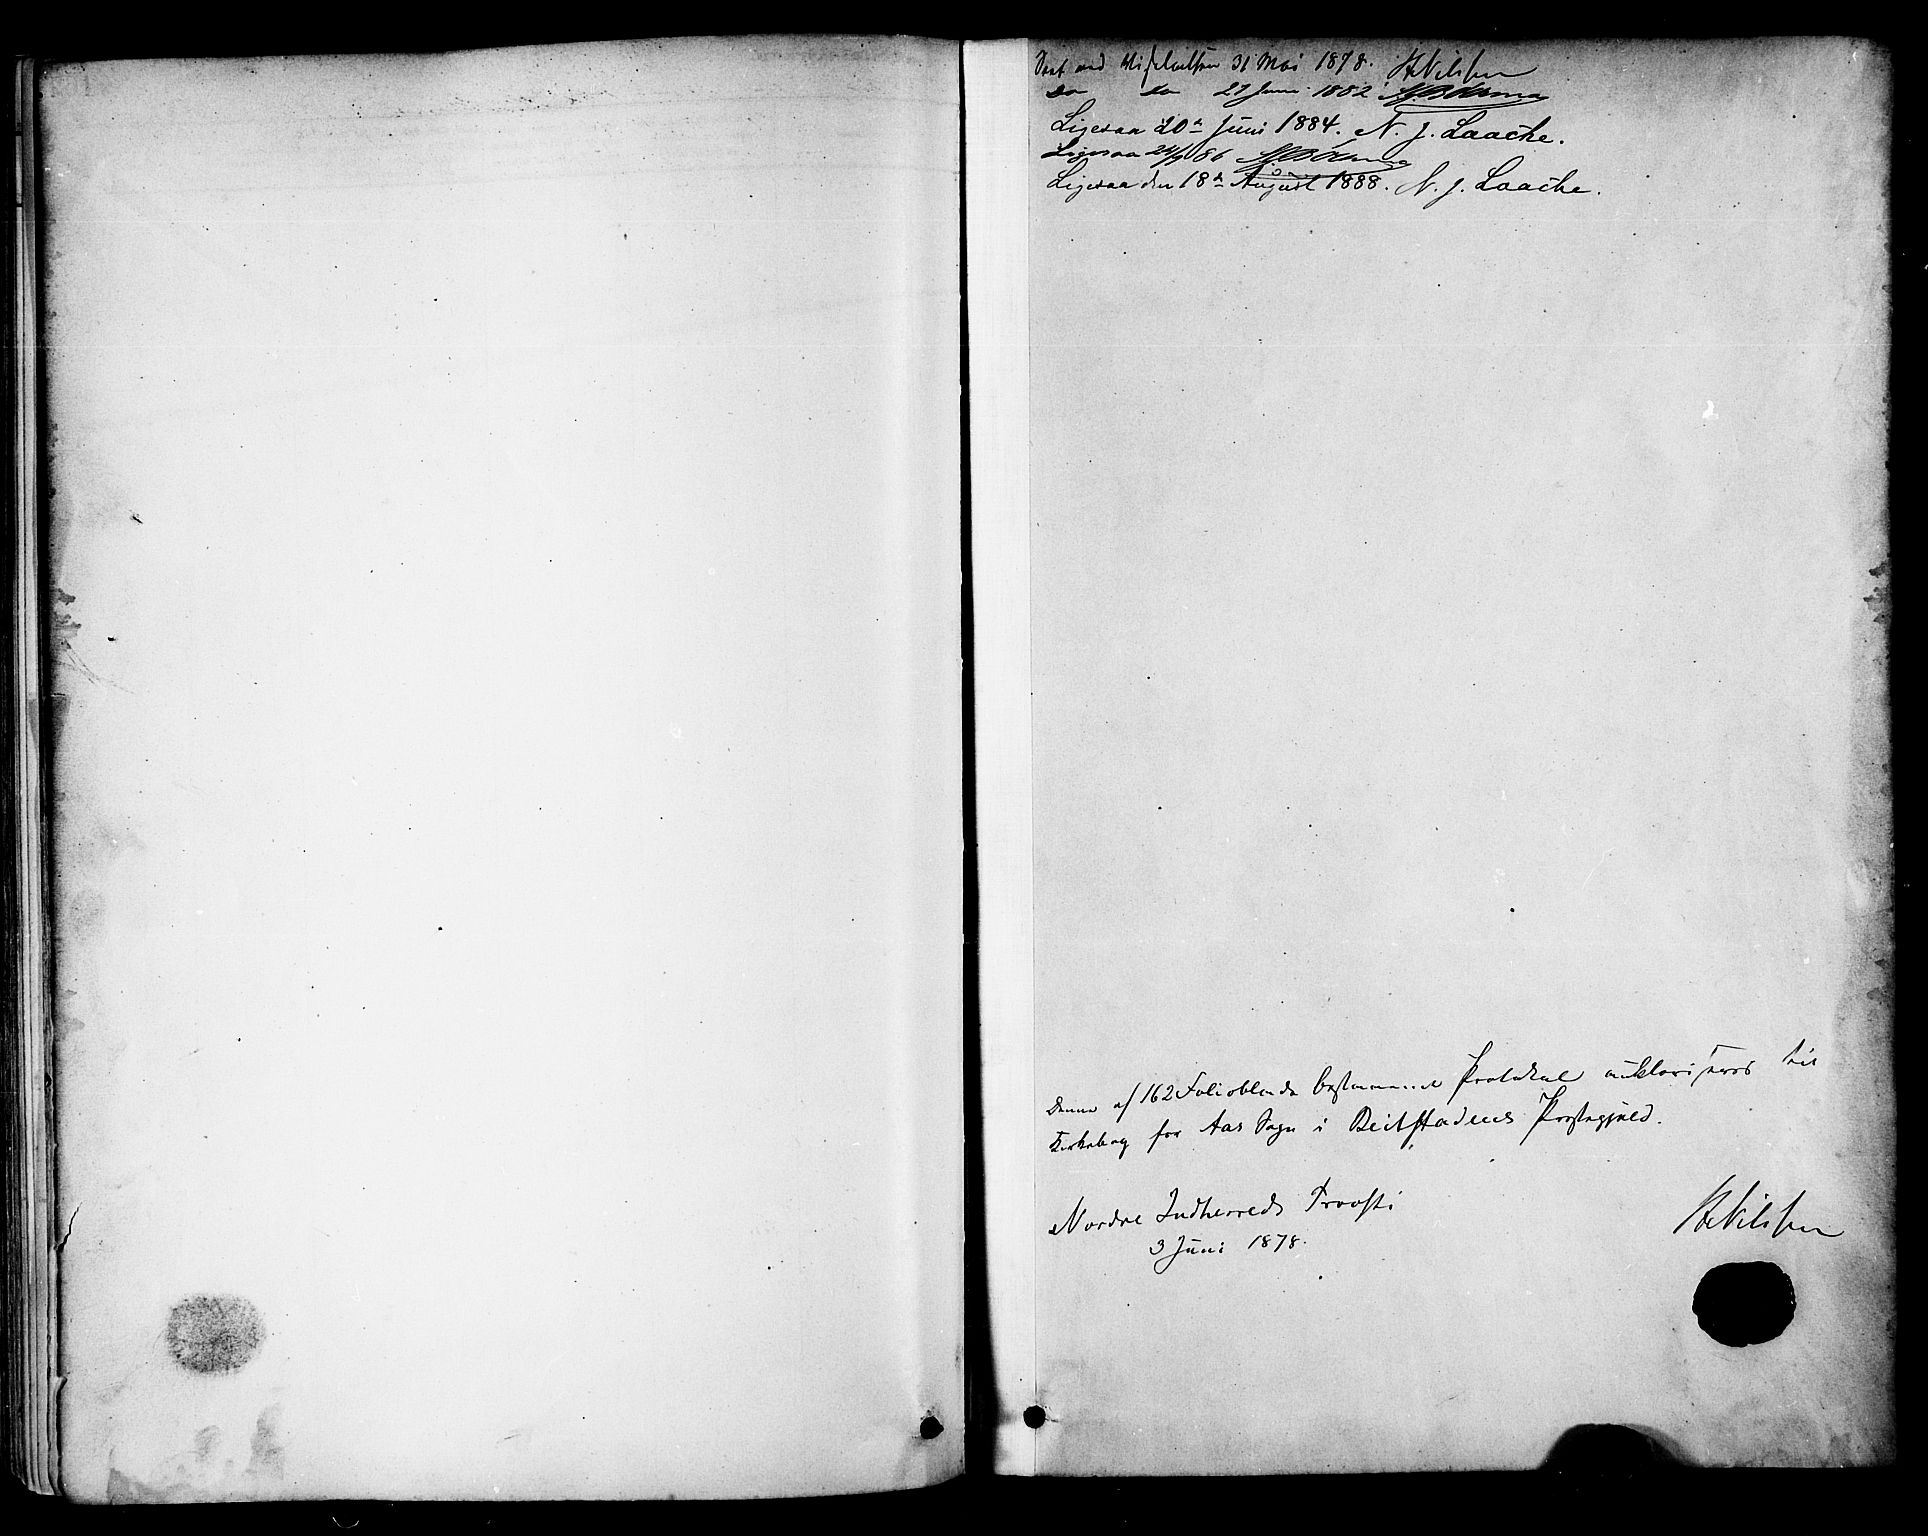 Seet ved Visitatsen 31 Mai 1878. Nilssen
Do do 27 Juni 1882
Ligesaa 20de Juni 1884. N. J. Laache.
Ligesaa 24/9 86
Ligesaa den 18de August 1888. N. J. Laache.
Denne af 162 Folioblade bestaaende Protokol auktoriseres til
Kirkebog for Aas Sogn i Beitstadens Præstegjæld.
Nordre Indherreds Provsti
3 Juni 1878.
Nilssen